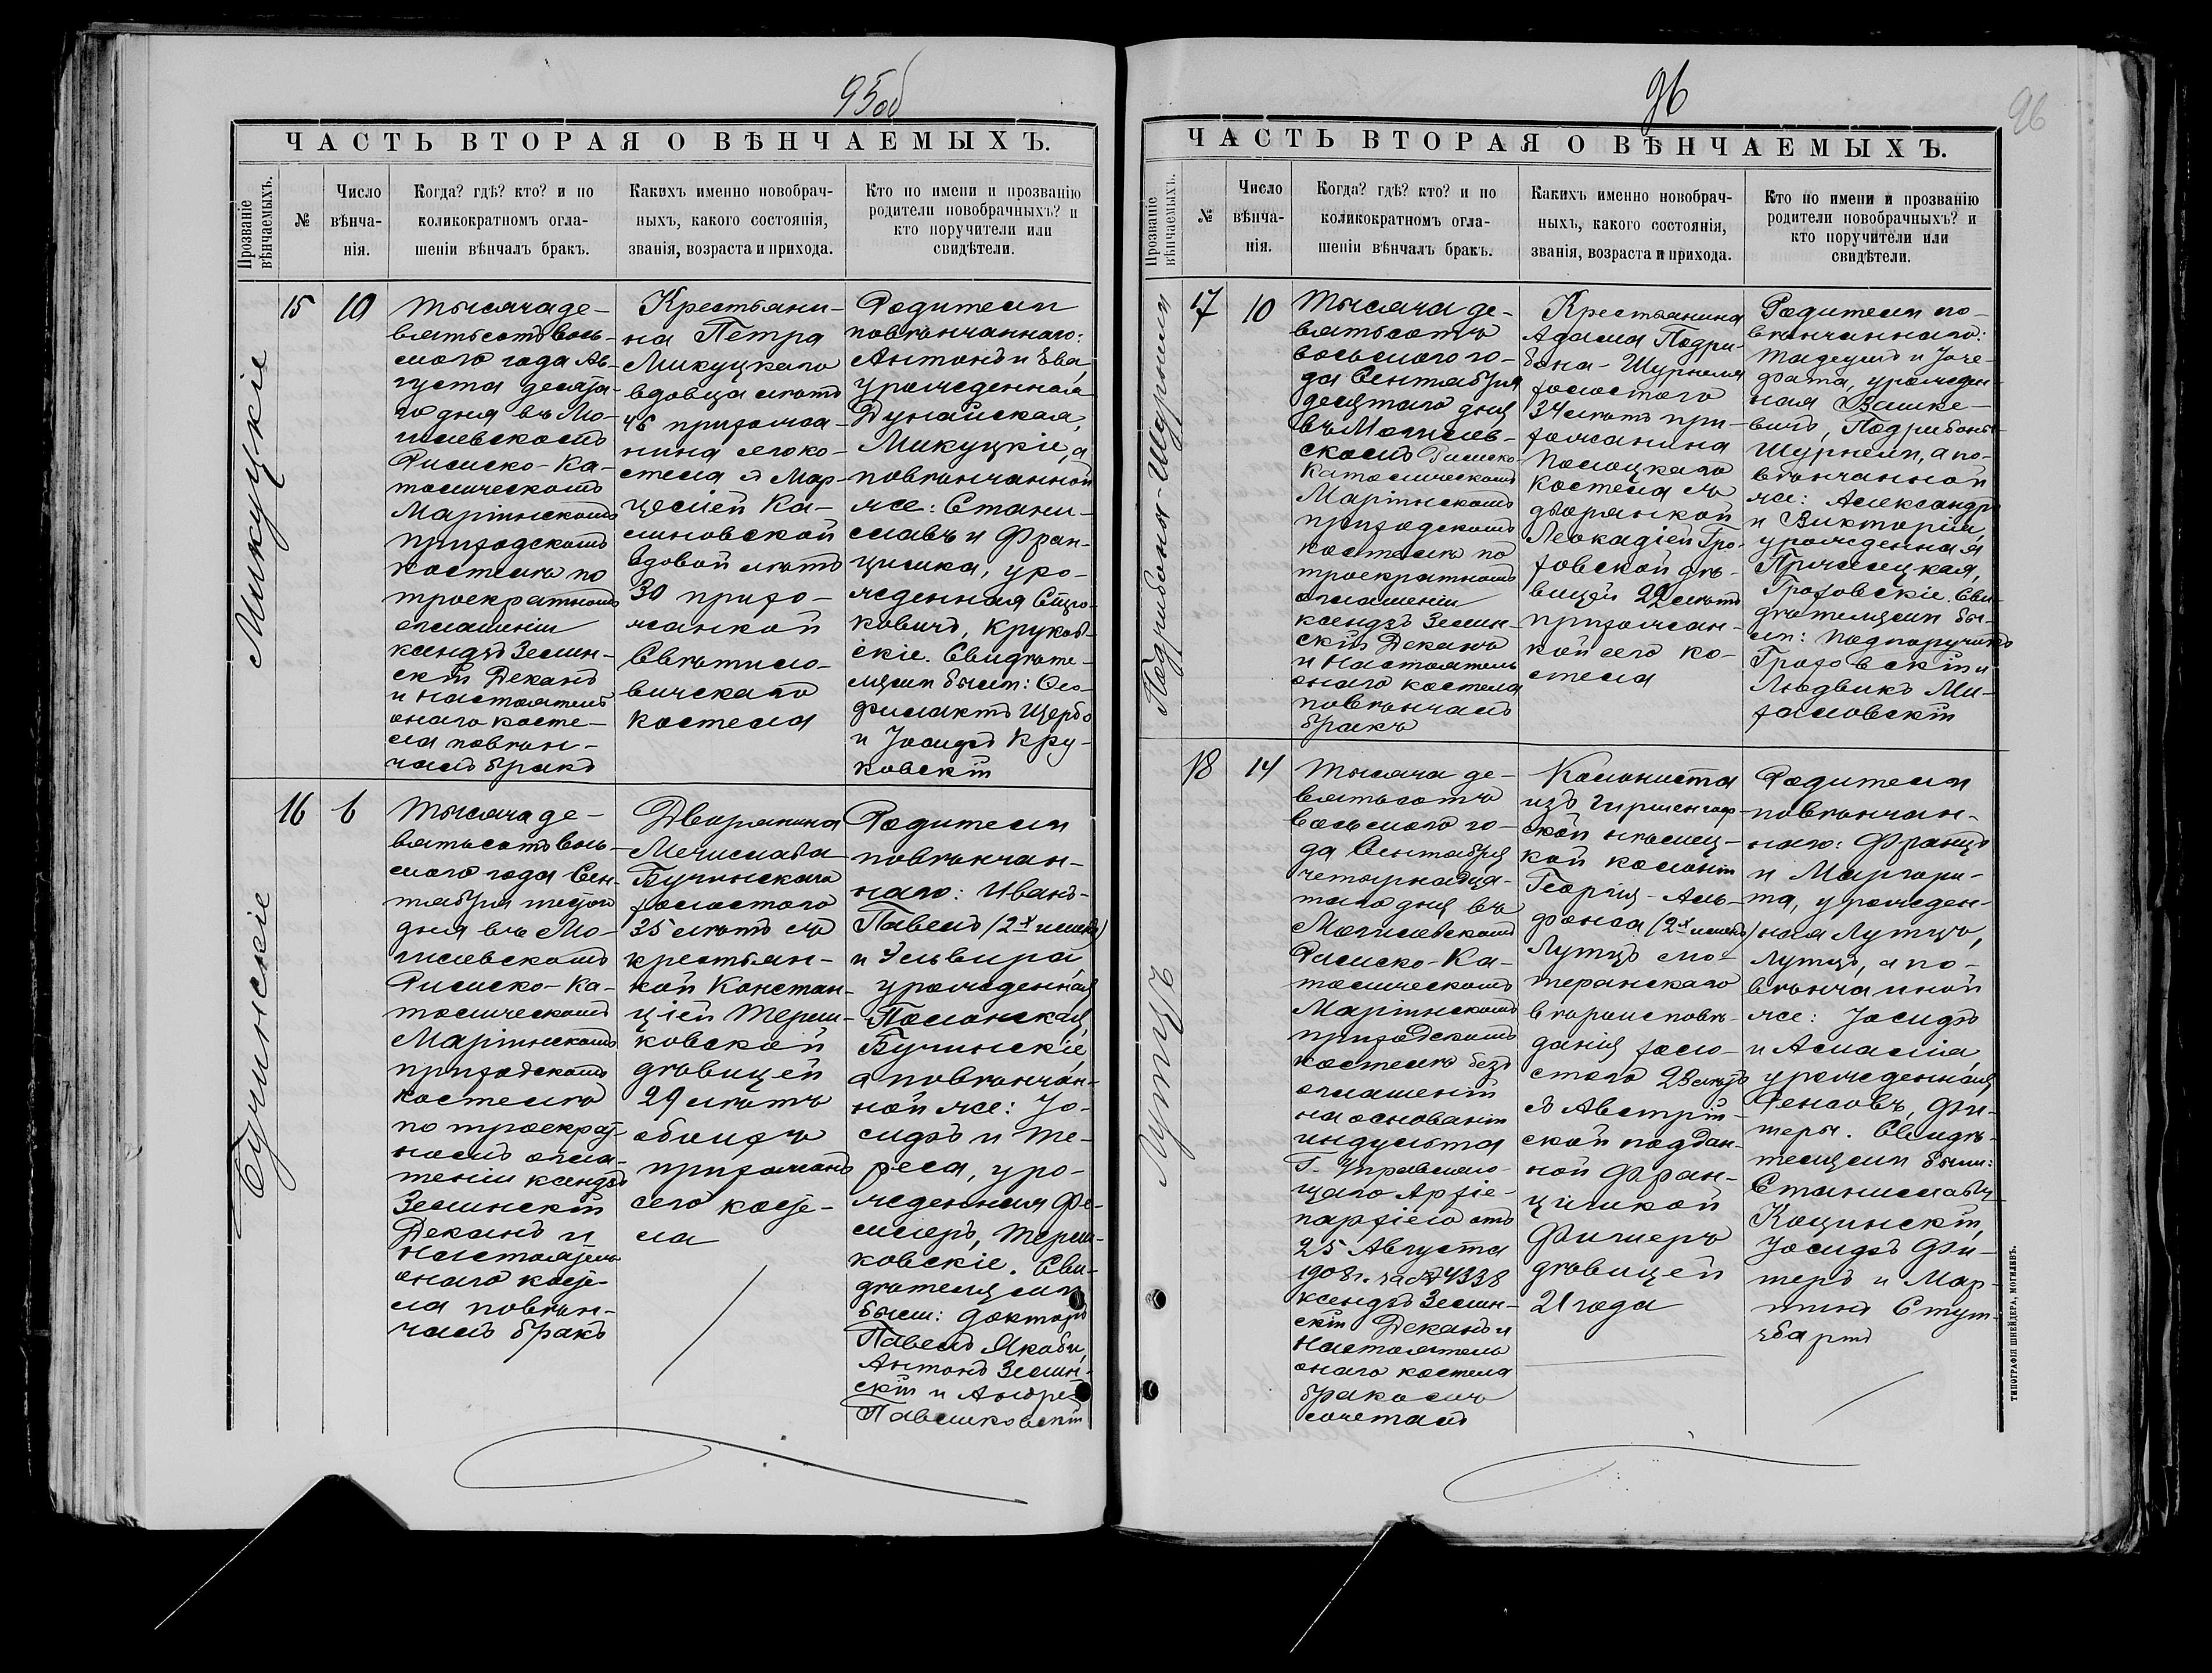 95об
ЧАСТЬ ВТОРАЯ О ВѢНЧАЕМЫХЪ.
Прозваніе
вѣнчаемыхъ.
№
Число
вѣнча-
нія.
Когда? гдѣ? кто? и по
коликократномъ огла-
шеніи вѣнчалъ бракъ.
Какихъ именно новобрач-
ныхъ, какого состоянія,
званія, возраста и прихода.
Кто по имени и прозванію
родители новобрачныхъ? и
кто поручители или
свидѣтели.
Микуцкіе
15
10
Тысяча де-
вятьсотъ вось-
мого года Ав-
густа десята-
го дня въ Мо-
гилевскомъ
Римско-Ка-
толическомъ
Маріинскомъ
приходскомъ
костелѣ по
троекратномъ
оглашеніи
ксендзъ Зелин-
скій Деканъ
и настоятель
онаго косте-
ла повѣн-
чалъ бракъ
Крестьяни-
на Петра
Микуцкаго
вдовца лѣтъ
46 прихожа-
нина сего ко-
стела съ Мар-
целіей Ка-
линовской
вдовой лѣтъ
30 прихо-
жанкой
Святило-
вичскаго
костела
Родители
повѣнчаннаго:
Антонъ и Ева,
урожденная
Дунайская,
Микуцкіе, а
повѣнчанной
же: Стани-
славъ и Фран-
цишка, уро-
жденная
ковичъ, Круков-
скіе. Свидѣте-
лями были: Ѳео-
филактъ Щербо
и Іосифъ Кру-
ковскій
Бучинскіе
16
6
Тысяча де-
вятьсотъ вось-
мого года Сен-
тября шестого
дня въ Мо-
гилевскомъ
Римско-Ка-
толическомъ
Маріинскомъ
приходскомъ
костелѣ
по троекрат-
номъ огла-
шеніи ксендзъ
Зелинскій
Деканъ и
Настоятель
онаго косте-
ла повѣн-
чалъ бракъ
Дворянина
Мечислава
Бучинскаго
холостого
35 лѣтъ съ
крестьян-
кой Констан-
ціей Тереш-
ковской
дѣвицей
29 лѣтъ
обоихъ
прихожанъ
сего косте-
ла
Родители
повѣнчан-
наго: Иванъ-
Павелъ (2хъ именъ)
и Эльвира,
урожденная
Полонская,
Бучинскіе,
а повѣнчан-
ной же: Іо-
сифъ и Те-
реса, уро-
жденная
Тереш-
ковскіе. Сви-
дѣтелями
были: докторъ
Павелъ Якоби,
Антонъ Зелин-
скій и Андрей
Павликовскій
96
96
ЧАСТЬ ВТОРАЯ О ВѢНЧАЕМЫХЪ.
Прозваніе
вѣнчаемыхъ.
№
Число
вѣнча-
нія.
Когда? гдѣ? кто? и по
коликократномъ огла-
шеніи вѣнчалъ бракъ.
Какихъ именно новобрач-
ныхъ, какого состоянія,
званія, возраста и прихода.
Кто по имени и прозванію
родители новобрачныхъ? и
кто поручители или
свидѣтели.
Подрибоны-Шурпели
17
10
Тысяча де-
вятьсотъ
восьмого го-
да Сентября
десятаго дня
въ Могилев-
скомъ Римско-
Католическомъ
Маріинскомъ
приходскомъ
костелѣ по
троекратномъ
оглашеніи
ксендзъ Зелин-
скій Деканъ
и Настоятель
онаго костела
повѣнчалъ
бракъ
Крестьянина
Адама Подри-
бона-Шурпеля
холостого
34 лѣтъ при-
хожанина
Полоцкаго
костела съ
дворянкой
Леокадіей Гро-
ховской дѣ-
вицей 22 лѣтъ
прихожан-
кой сего ко-
стела
Родители по-
вѣнчаннаго:
Тадеушъ и Іозе-
фата, урожден-
ная Вашке-
вичъ, Подрибоны-
Шурпели, а по-
вѣнчанной
же: Александръ
и Викторія,
урожденная
Гроховскіе. Сви-
дѣтелями бы-
ли: подпоручикъ
Гроховскій и
Людвикъ Ми-
халовскій
Лутцъ
18
14
Тысяча де-
вятьсотъ
восьмого го-
да Сентября
четырнадца-
таго дня въ
Могилевскомъ
Римско-Ка-
толическомъ
Маріинскомъ
приходскомъ
костелѣ безъ
оглашеній
на основаніи
индульта
Г. Управляю-
щаго Архіе-
пархіею отъ
25 Августа
1908г. за № 4338
ксендзъ Зелин-
скій Деканъ и
Настоятель
онаго костела
бракосоче
сочеталъ
Колониста
изъ Гиршенгоф-
ской нѣмец-
кой колоніи
Георгія-Аль-
фонса (2хъ именъ)
Лутцъ лю-
теранскаго
вѣроисповѣ-
данія холо-
стого 28 лѣтъ
съ Австрій-
ской поддан-
ной Фран-
цишкой
Фишеръ
дѣвицей
21 года
Родители
повѣнчан-
наго: Францъ
и Маргари-
та, урожден-
ная Лутцъ,
Лутцъ, а по-
вѣнчанной
же: Іосифъ
и Амалія,
урожденная
Фи-
шеры. Свидѣ-
телями были:
Станиславъ
Коцинскій,
Іосифъ Фи-
шеръ и Мар-
тинъ Стут-
гбартъ
ТИПОГРАФІЯ ШНЕЙДЕРА, МОГИЛЕВЪ.